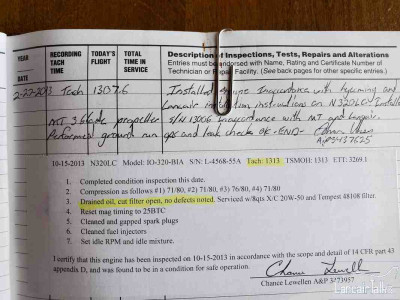 YEAR
RECORDING TACH TIME
TODAY'S FLIGHT
TOTAL TIME IN SERVICE
Description of Inspections, Tests, Repairs and Alterations
Entries must be endorsed with Name, Rating and Certificate Number of
Technician or Repair Facility. (See back pages for other specific entries.)
DATE
2-22-2013 Tach 1307.6 Installed engine in accordance with Lycoming and
Lancair instructions on N320LC. Installed
MT 3 blade propeller S/N in accordance with MT and Lancair.
Performed ground run ops and leak check ok. -END-
A+P3437625
10-15-2013 N320LC Model: IO-320-BIA S/N: L-4568-55A Tach: 1313 TSMOH: 1313 ETT: 3269.1
1. Completed condition inspection this date.
2. Compression as follows #1) 71/80, #2) 71/80, #3) 76/80, #4) 71/80
3. Drained oil, cut filter open, no defects noted. Serviced w/8qts X/C 20W-50 and Tempest 48108 filter.
4. Reset mag timing to 25BTC
5. Cleaned and gapped spark plugs
6. Cleaned fuel injectors
7. Set idle RPM and idle mixture.
I certify that this engine has been inspected on 10-15-2013 in accordance with the scope and detail of 14 CFR part 43
appendix D, and was found to be in a condition for safe operation.
Chance Lewellen A&P 3273957
Lancairtalk